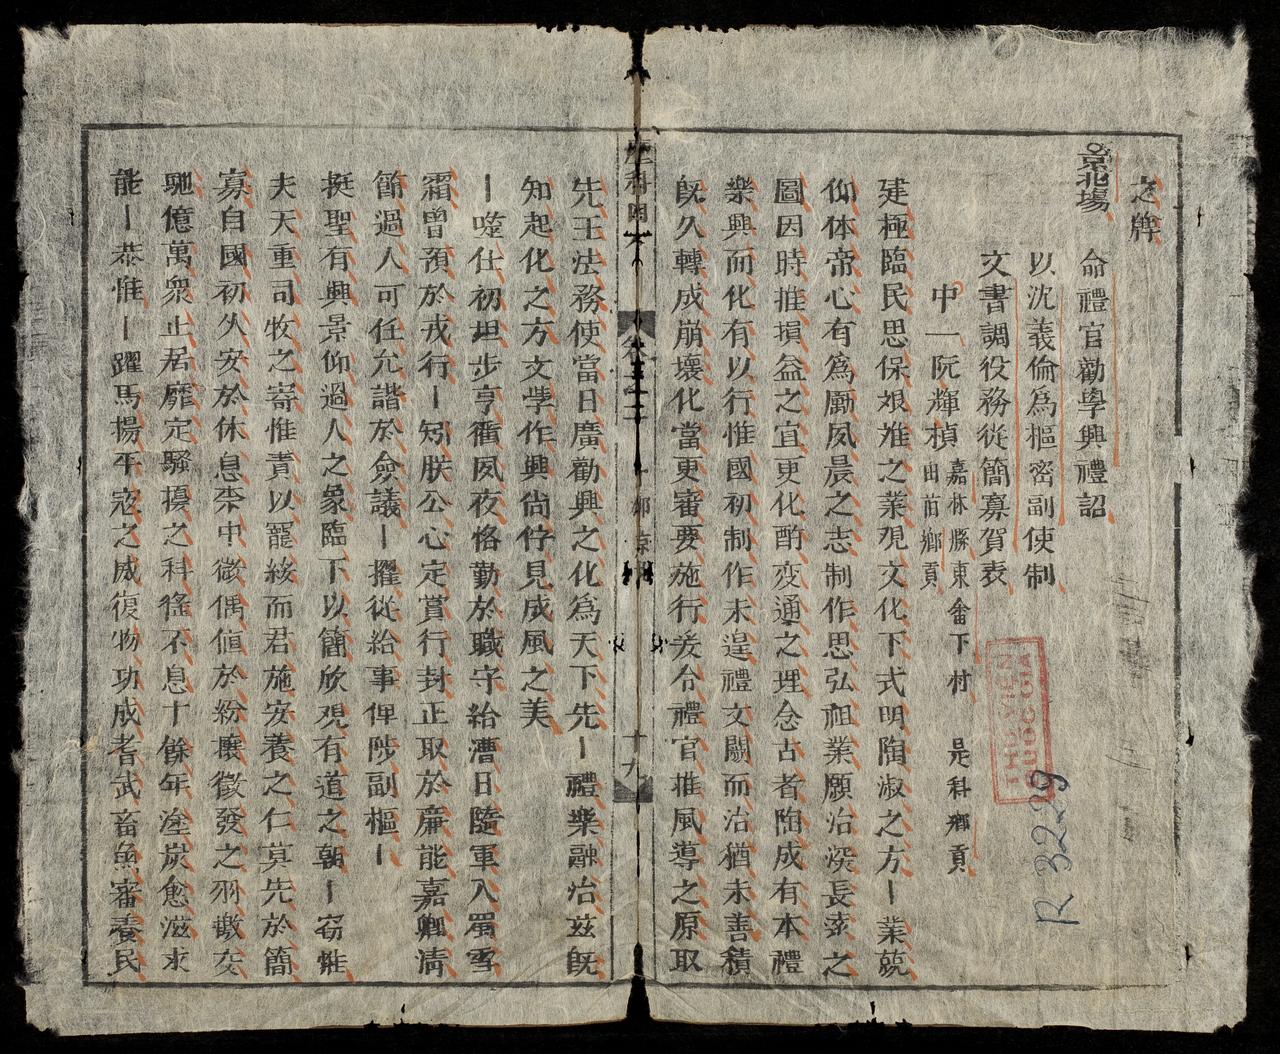 之牌
京北場 命禮官勸學興禮詔
以沈義倫爲樞密副使制
文書調役務從簡寡賀表
中一阮輝楨 嘉林勝東畬下村 是科鄉貢
田苗鄉貢
建極臨民思保艰难之業覌文化下式明陶淑之方｜業兢
仰体帝心有爲勵夙晨之志制作思弘祖業願治深長索之
圖因時推損益之宜更化酌变通之理念古者陶成有本禮
樂興而化有以行惟國初制作未遑禮文闕而治猶未善積
旣久轉成崩壞化當更審要施行爰合禮官推風導之原取
先王法務使當日廣勸興之化爲天下先｜禮樂融治玆旣
知起化之方文學作興尙佇見成風之美
｜噬仕初坦步亨衢夙夜恪勤於職守給漕日隨軍入蜀雪
霜曽預於戎行｜矧朕公心定賞行封正取於廉能嘉卿淸
簡過人可任允諧於僉議｜擢從給事俾陟副樞｜
挺聖有興景仰過人之象臨下以簡欣覌有道之朝｜窃惟
夫天重司牧之寄惟責以寵綏而君施安養之仁莫先於簡
寡自國初久安於休息柰中微偶値於紛攘徵發之羽檄交
馳億萬衆止居靡定騷擾之科徭不息十餘年塗炭愈滋求
能｜恭惟｜躍馬揚平宼之威復物功成者武畜魚審養民
卷之三
十九
THƯ VIỆN
QUỐC GIA
R 3229